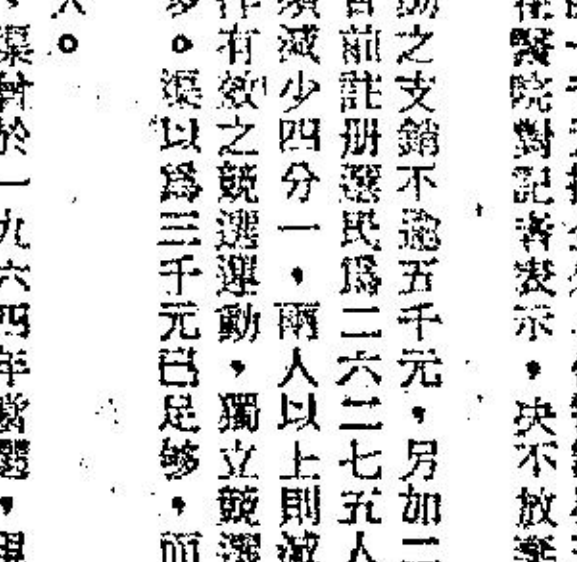 在醫院對記者表示，决不放棄
之支銷不逾五千元，另加二
前註册選民爲二六二七五人
減少四分一，兩人以上則減
作有效之競選運動，獨立競選
。渠以爲三千元已足够，而
。
渠曾於一九六四年當選，